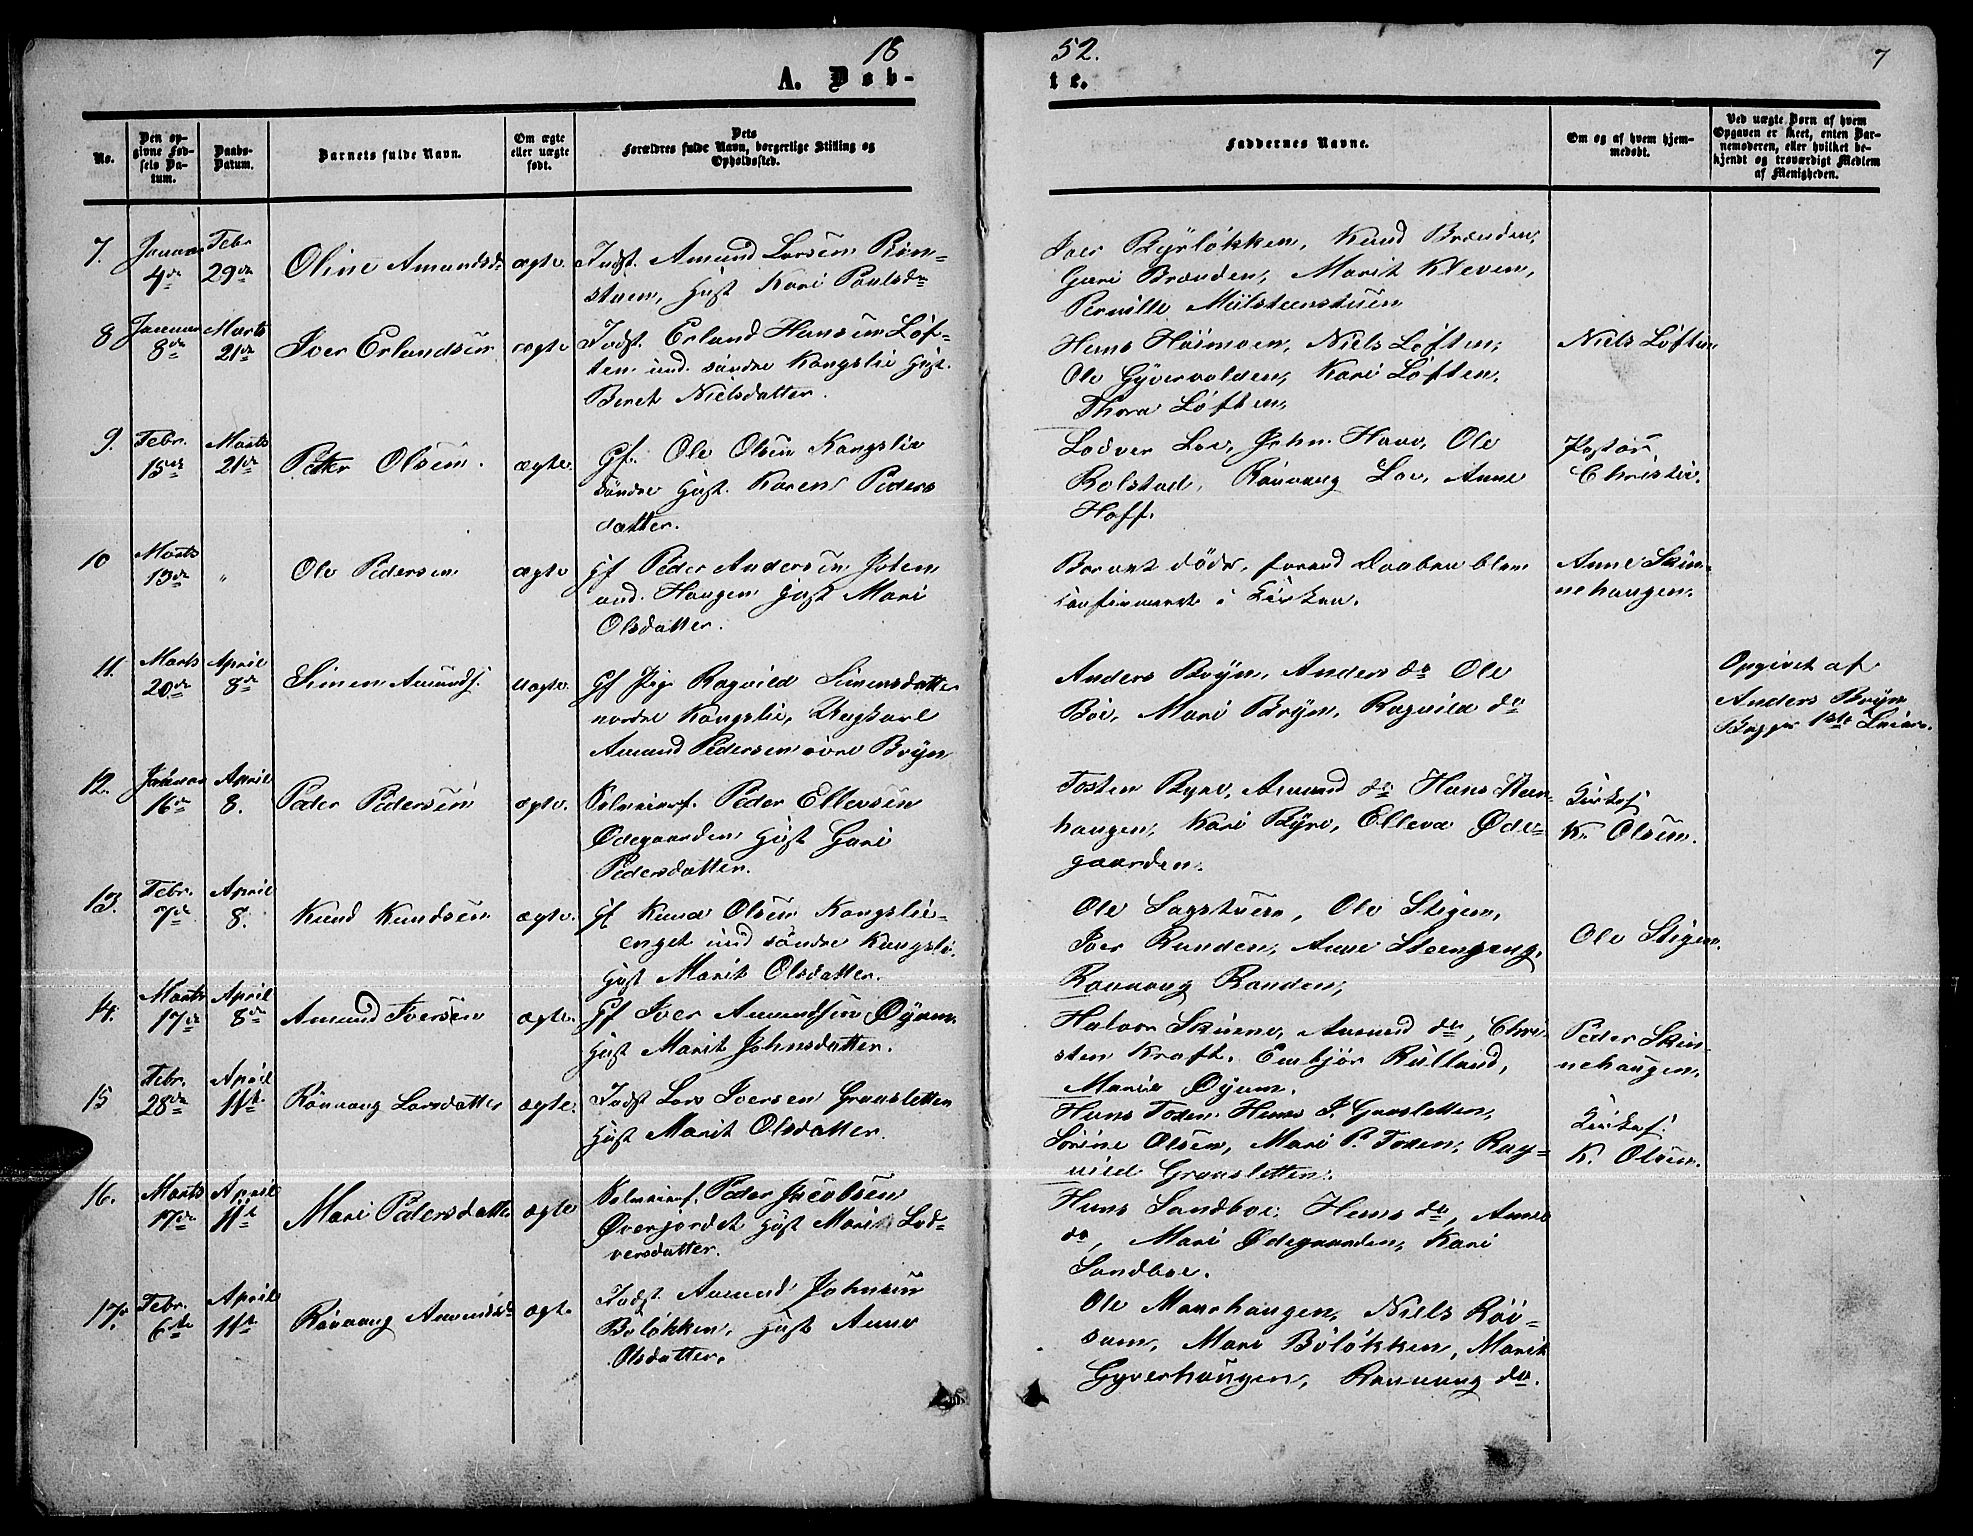 1852.
7
A. Døbte.
No.
Den opgivne Fødsels Datum.
Daabs-Datum.
Barnets fulde Navn.
Om ægte eller uægte født.
Dets Forældres fulde Navn, borgerlige Stilling og Opholdssted.
Faddernes Navne.
Om og af hvem hjemmedøbt.
Ved uægte Børn af hvem Opgaven er skeet, enten Barnemoderen, eller hvilket bekjendt og troværdigt Medlem af Menigheden.
7. Januar 4de Febr 29de Oline Amundsd. ægte.
Indst. Amund Larsen Røn-
stuen, Hust Kari Paulsd.
Iver Byrløkken, Knud Brænden,
Gari Brænden, Marit Kleven,
Pernille Mülsteenstuen
8 Januar 8de Marts 21de Iver Erlandsen ægte
Indst. Erland Hansen Løf-
ten und. søndre Kongslie Hust.
Beret Nielsdatter.
Hans Høimoen, Niels Løften,
Ole Gyvervolden, Kari Løften,
Thora Løften,
Niels Løften
9. Febr. 15de Marts 21de Peter Olsen. ægte.
Gf. Ole Olsen Kongslie
søndre Hust. Karen Peders
datter.
Lodver Loe, John Haave, Ole
Rolstad, Rønnaug Loe, Anne
Hoff.
Pastor
Christie.
10 Marts 13de " Ole Pedersen ægte
Gf Peder Andersen
und. Haugen Hust Mari
Olsdatter.
Barnet døde, forend Daaben blev
confirmeret i Kirken.
Anne Skin-
nehaugen.
11. Marts 20de April 8de Simen Amunds. uægte.
Gf Pige Ragnild Simensdatter
nordre Kongslie, Ungkarl
Amund Pedersen øvre Bryn
Anders Bryn, Anders do Ole
Bøe, Mari Bryn, Ragnild do
Opgivet af
Anders Bryn
Begges 1ste Leierm.
12. Januar 16de April 8. Peder Pedersen ægte.
Selveierf. Peder Ellevsen
Ødegaarden Hust Gari
Pedersdatter.
Tosten Byre, Amund do Hans
haugen, Kari Byre, Elleva Øde-
gaarden.
Kirkes.
K. Olsen.
13. Febr. 7de April 8. Knud Knudsen ægte.
Gf Knud Olsen Kongslie-
enget und søndre Kongslie.
Hust Marit Olsdatter.
Ole Sagstuen, Ole Stigen,
Iver Randen, Anne Steengang,
Rønnaug Randen,
Ole Stigen.
14. Marts 17de April 8de Amund Iversen ægte.
Gf Iver Amundsen Øyum.
Hust Marit Johnsdatter.
Halvor Skinne, Amund do, Chri-
sten Kraft, Embjør Rülland,
Marie Øyum.
Peder Skin-
nehaugen.
15 Febr. 28de April 11te Rønnaug Larsdatter ægte.
Indst Lars Iversen Graasletten
Hust Marit Olsdatter.
Hans Toden Hans I. Graasletten,
Lorine Olsen, Mari P. Toden, Rag-
nild Graasletten.
Kirkes.
K. Olsen.
16. Marts 17de April 11te Mari Pedersdatter ægte
Selveierf. Peder Jacobsen
Øverjordet Hust Marit Lod-
versdatter.
Hans Sandboe, Hans do, Anne
do, Mari Ødegaarden, Kari
Sandboe.
17. Febr. 6te April 11te Rønnaug Amundsd. ægte
Indst. Amund Johnsen
Boløkken, Hust Anne
Olsdatter.
Ole Maurhaugen, Niels Røv-
sum, Mari Boløkken, Marit
Gyverhaugen, Rønnaug do.